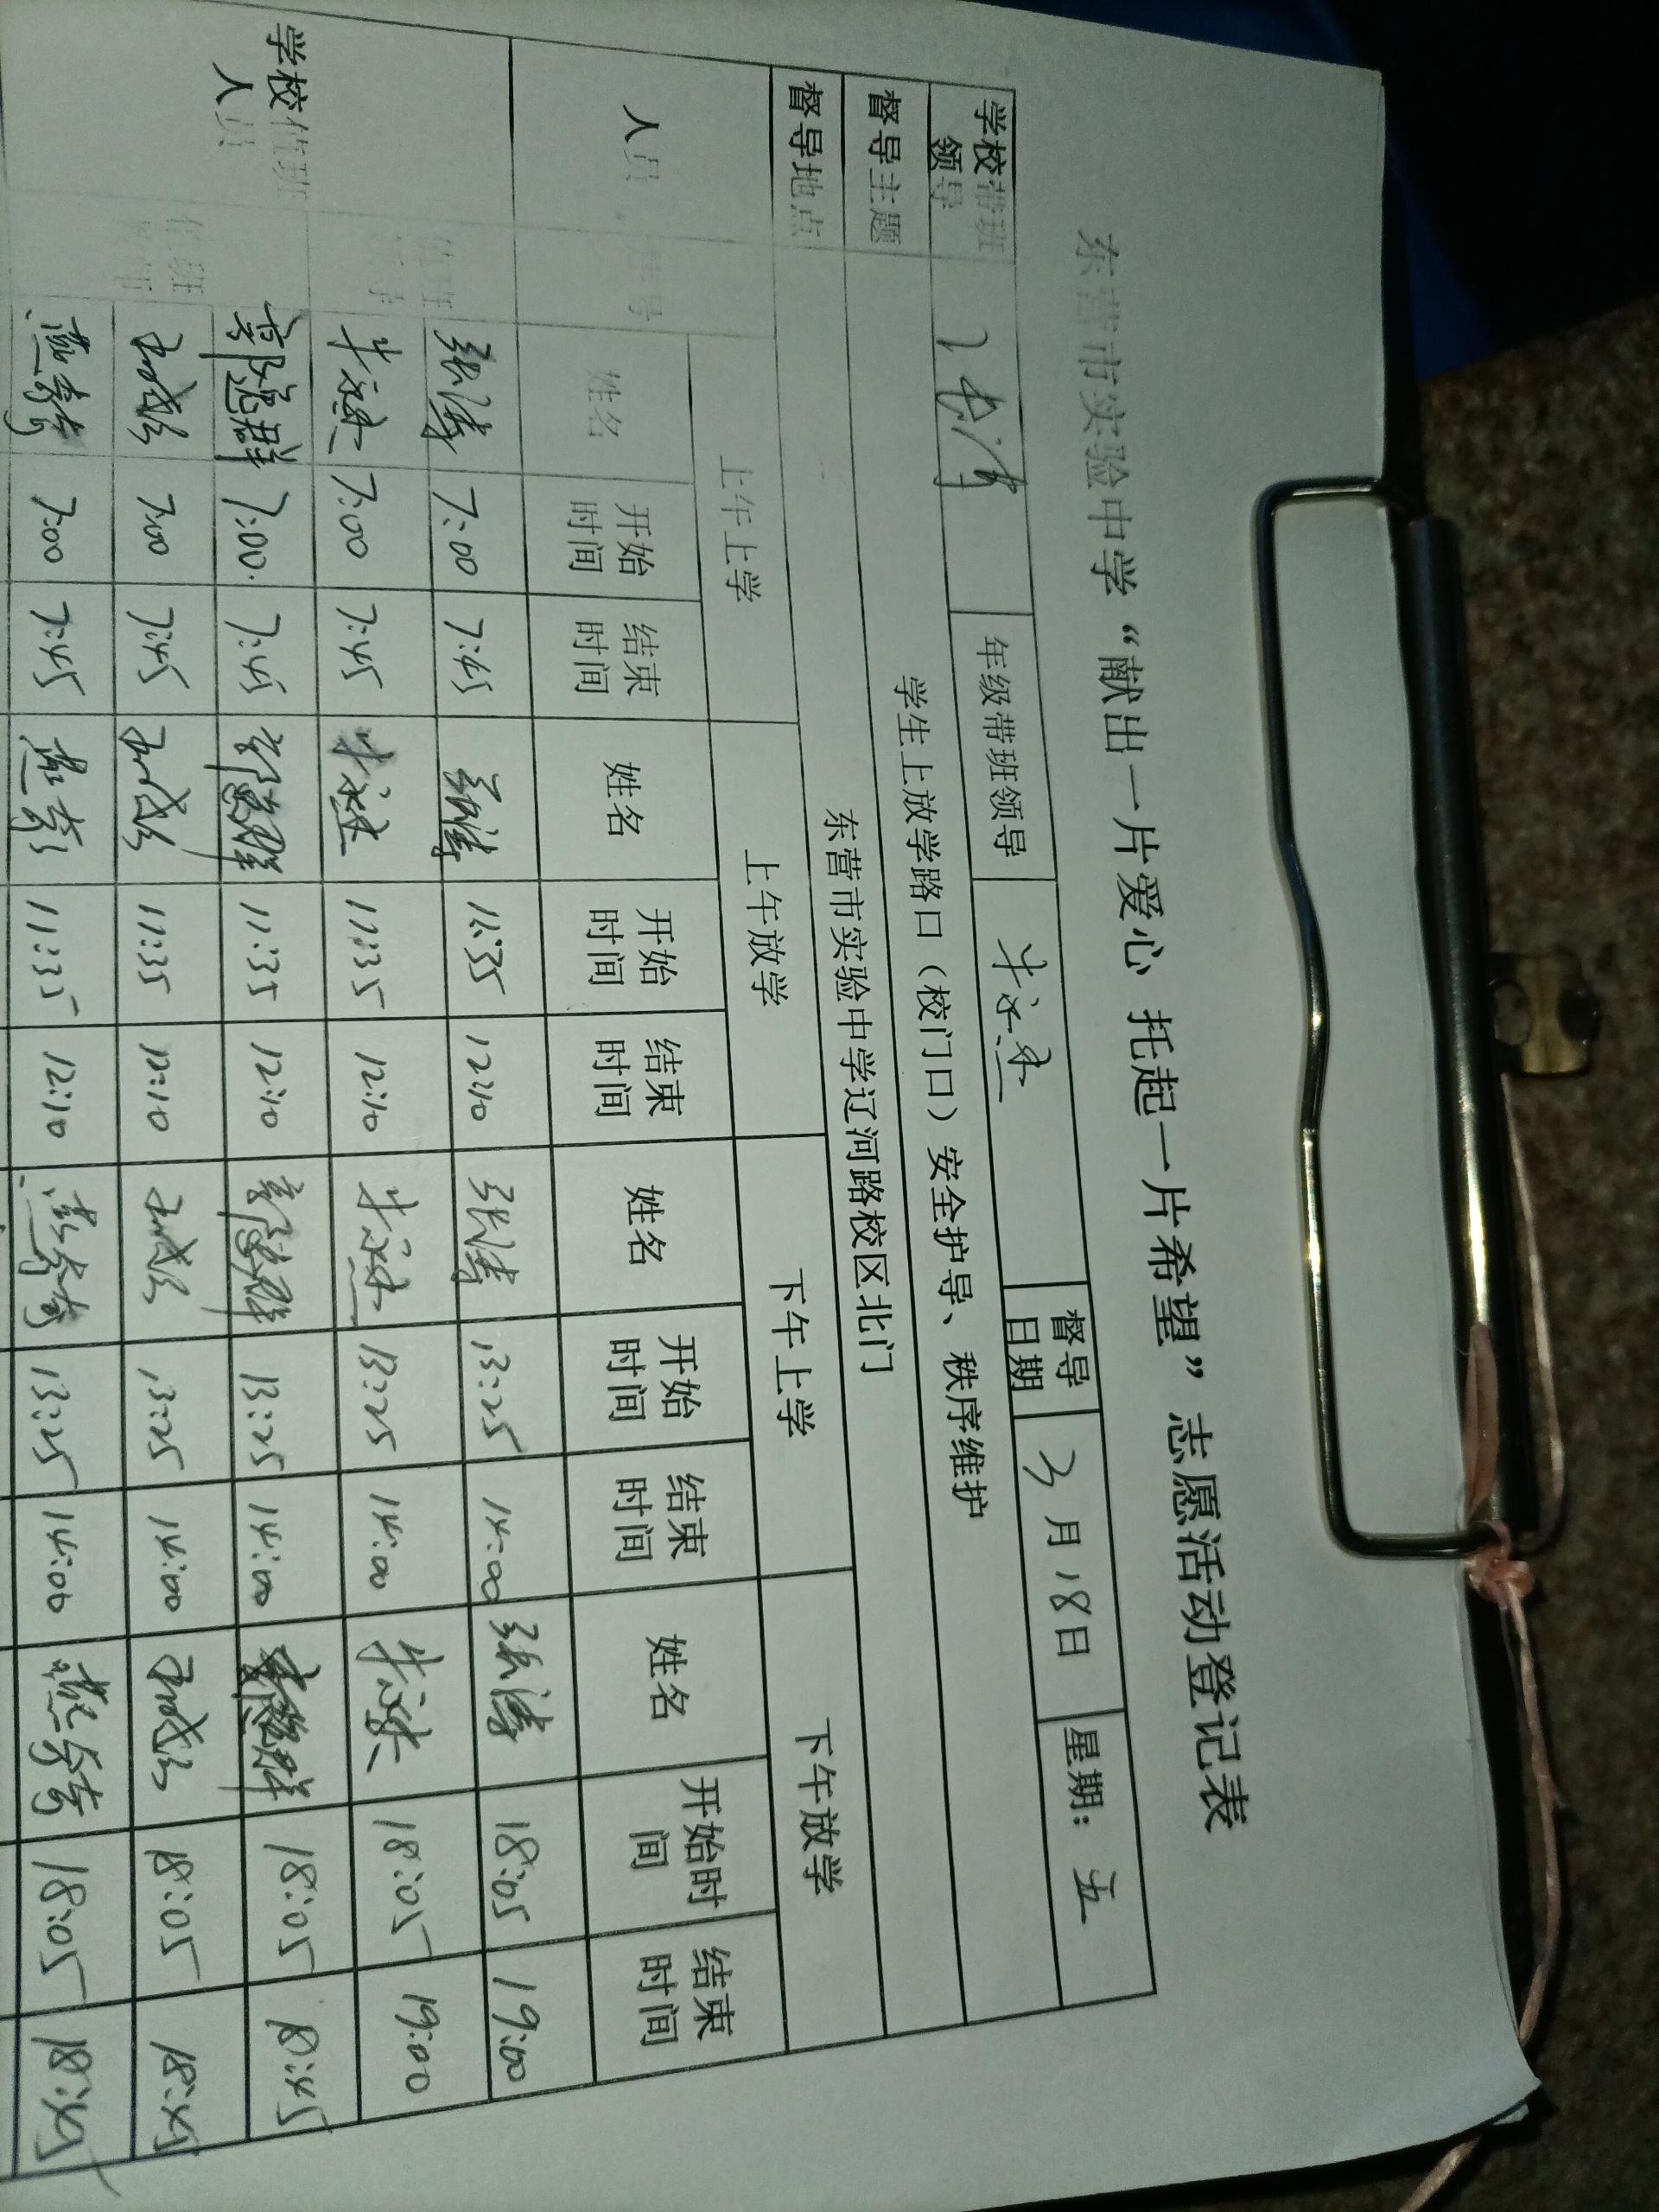 东营市实验中学“献出一片爱心 托起一片希望”志愿活动登记表
学校带班领导 年级带班领导 督导日期 3月18日 星期：五
督导主题 学生上放学路口（校门口）安全护导、秩序维护
督导地点 东营市实验中学辽河路校区北门
人员 上午上学 上午放学 下午上学 下午放学
姓名 开始时间 结束时间 姓名 开始时间 结束时间 姓名 开始时间 结束时间 姓名 开始时间 结束时间
学校值班人员
值班领导 张涛 7:00 7:45 张涛 11:35 12:10 张涛 13:25 14:00 张涛 18:05 19:00
7:00 7:45 11:35 12:10 13:25 14:00 18:05 19:00
值班教师 郭冠群 7:00 7:45 郭冠群 11:35 12:10 郭冠群 13:25 14:00 郭冠群 18:05 18:45
7:00 7:45 11:35 12:10 13:25 14:00 18:05 18:45
7:00 7:45 11:35 12:10 13:25 14:00 18:05 18:45